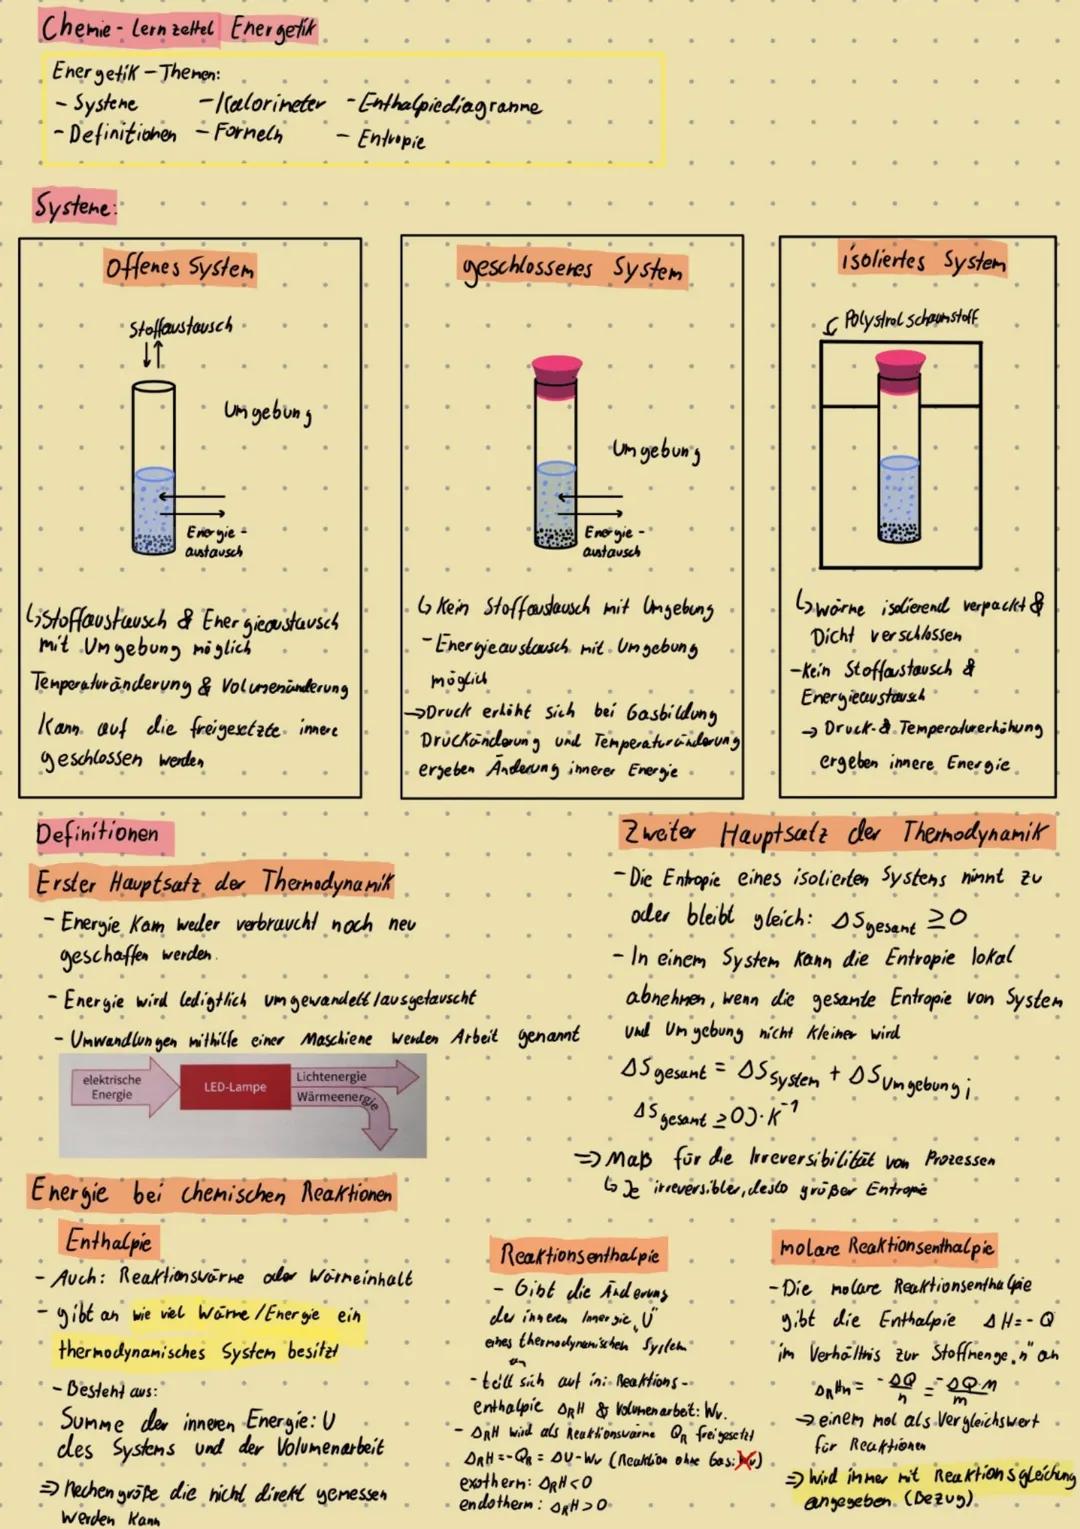 Chemie - Lernzettel Energetik
Energetik - Themen:
- Systeme - Kalorimeter - Enthalpiediagramme
- Definitionen - Formeln - Entropie
Systeme:
Offenes System
Stoffaustausch
Umgebung
Energie-
austausch
↳ Stoffaustausch & Energieaustausch
mit Umgebung möglich
Temperaturänderung & Volumenänderung
Kann auf die freigesetzte innere
geschlossen werden
geschlossenes System
Umgebung
Energie-
austausch
↳ Kein Stoffaustausch mit Umgebung
- Energieaustausch mit Umgebung
möglich
→ Druck erhöht sich bei Gasbildung
Druckänderung und Temperaturänderung
ergeben Änderung innerer Energie
isoliertes System
Polystrol schaumstoff
↳ wärme isolierend verpackt &
Dicht verschlossen
- Kein Stoffaustausch &
Energieaustausch
→ Druck- & Temperaturerhöhung
ergeben innere Energie
Definitionen
Erster Hauptsatz der Thermodynamik
- Energie kann weder verbraucht noch neu
geschaffen werden.
- Energie wird ledigtlich umgewandelt/ausgetauscht
- Umwandlungen mithilfe einer Maschiene werden Arbeit genannt
elektrische
Energie
LED-Lampe
Lichtenergie
Wärmeenergie
Zweiter Hauptsatz der Thermodynamik
- Die Entropie eines isolierten Systems nimmt zu
oder bleibt gleich: ΔSgesamt ≥ 0
- In einem System kann die Entropie lokal
abnehmen, wenn die gesamte Entropie von System
und Umgebung nicht kleiner wird
ΔSgesamt = ΔSSystem + ΔSUmgebung ;
ΔSgesamt ≥ 0 J·K⁻¹
⇒ Maß für die Irreversibilität von Prozessen
↳ Je irreversibler, desto größer Entropie
Energie bei chemischen Reaktionen
Enthalpie
- Auch: Reaktionswärme oder Wärmeinhalt
- gibt an wie viel Wärme/Energie ein
thermodynamisches System besitzt
- Besteht aus:
Summe der inneren Energie: U
des Systems und der Volumenarbeit
⇒ Rechengröße die nicht direkt gemessen
werden kann
Reaktionsenthalpie
- Gibt die Änderung
der inneren Energie „U"
eines thermodynamischen System
an
- teilt sich auf in: Reaktions-
enthalpie ΔRH & Volumenarbeit: Wv.
- ΔRH wird als Reaktionswärme QR freigesetzt
ΔRH = -QR = ΔU - Wv (Reaktion ohne Gas: Wv)
exotherm: ΔRH < 0
endotherm: ΔRH > 0
molare Reaktionsenthalpie
- Die molare Reaktionsenthalpie
gibt die Enthalpie ΔH = -Q
im Verhältnis zur Stoffmenge „n" an
ΔRHm = -ΔQ/n = -ΔQ·M/m
→ einem mol als Vergleichswert
für Reaktionen
⇒ Wird immer mit Reaktionsgleichung
angegeben (Bezug)